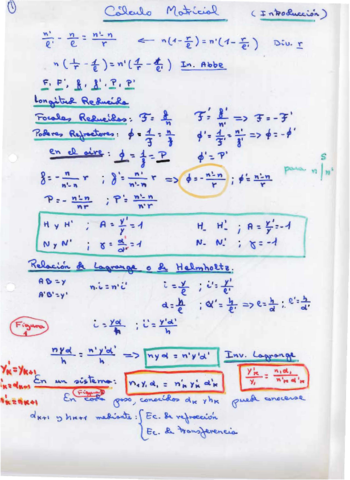 1
Cálculo Matricial (Introducción)
n'/l' - n/l = n'-n/r ← n(1 - r/l) = n'(1 - r/l') Div. r
n(1/r - 1/l) = n'(1/r - 1/l') In. Abbe
F, F', f, f', P, P'
Longitud Reducida
Focales Reducidas: F = f/n F' = f'/n' => F = -F'
Poderes Refractores: ϕ = 1/F = n/f ϕ' = 1/F' = n'/f' => ϕ = -ϕ'
en el aire: ϕ = 1/f = P ϕ' = P'
para n | n'
f = - n/n'-n r ; f' = n'/n'-n r => ϕ = - n'-n/r ; ϕ' = n'-n/r
P = - n'-n/nr ; P' = n'-n/n'r
H y H' ; A = y'/y = 1 H_ H'_ ; A = y'/y = -1
N y N' ; γ = α'/α = 1 N_ N'_ ; γ = -1
Relación de Lagrange o de Helmholtz.
AB = y n.i = n'i' i = y/l ; i' = y'/l'
A'B' = y' α = h/l ; α' = h/l' => l = h/α ; l' = h/α'
Figura
i = yα/h ; i' = y'α'/h
nyα/h = n'y'α'/h => nyα = n'y'α' Inv. Lagrange
y'k = yk+1
En un sistema: n1 y1 α1 = n'k y'k α'k y'k/y1 = n1 α1/n'k α'k
α'k = αk+1
n'k = nk+1
En cada paso, conocidos αk, hk puedo conocerse
αk+1 y hk+1 mediante: { Ec. de refracción
Ec. de Transferencia